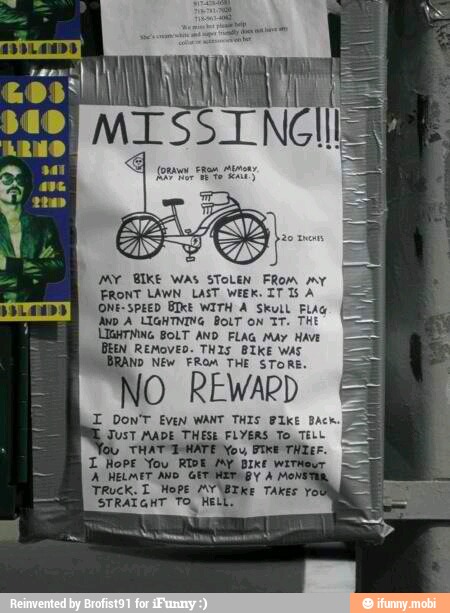 917-428-0581
718-781-7020
718-963-4042
We miss her please help
She's cream/white and super friendly does not have any
collar or accessories on her
MISSING!!!
(DRAWN FROM MEMORY.
MAY NOT BE TO SCALE.)
20 INCHES
MY BIKE WAS STOLEN FROM MY
FRONT LAWN LAST WEEK. IT IS A
ONE-SPEED BIKE WITH A SKULL FLAG
AND A LIGHTNING BOLT ON IT. THE
LIGHTNING BOLT AND FLAG MAY HAVE
BEEN REMOVED. THIS BIKE WAS
BRAND NEW FROM THE STORE.
NO REWARD
I DON'T EVEN WANT THIS BIKE BACK.
I JUST MADE THESE FLYERS TO TELL
YOU THAT I HATE YOU, BIKE THIEF.
I HOPE YOU RIDE MY BIKE WITHOUT
A HELMET AND GET HIT BY A MONSTER
TRUCK. I HOPE MY BIKE TAKES YOU
STRAIGHT TO HELL.
GOS
SCO
ERNO
SAT
AUG
22ND
Reinvented by Brofist91 for iFunny :)
ifunny.mobi